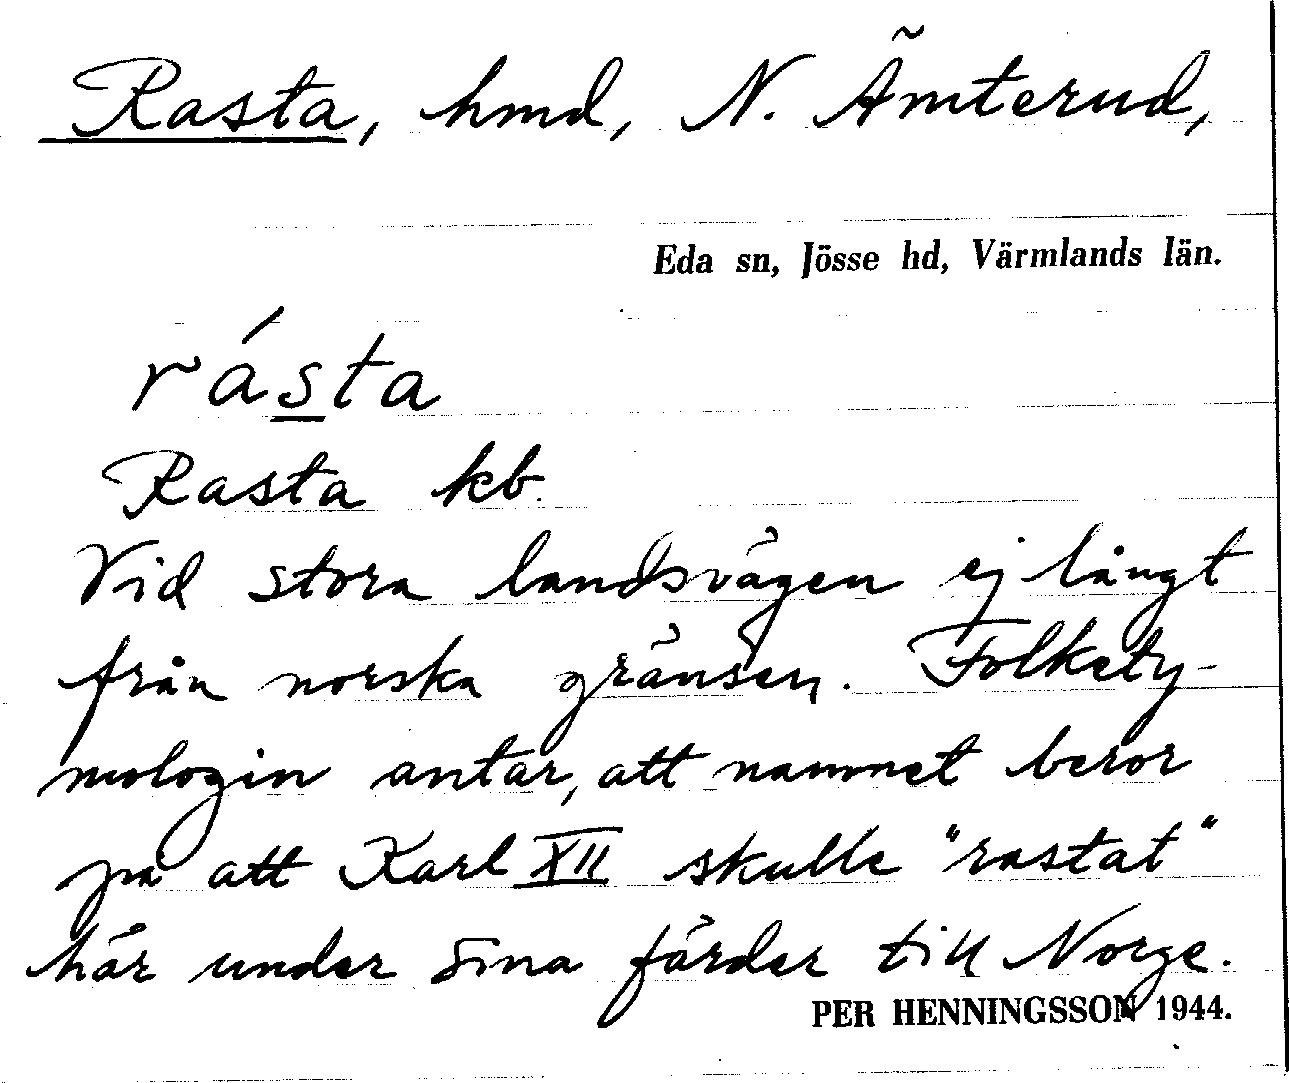 Rasta, hmd, N. Ämterud,
Eda sn, Jösse hd, Värmlands län.
rásta
Rasta kb.
Vid stora landsvägen ej långt
från norska gränsen. Folkety-
mologin antar, att namnet beror
på att Karl XII skulle "rastat"
här under sina färder till Norge.
PER HENNINGSSON 1944.